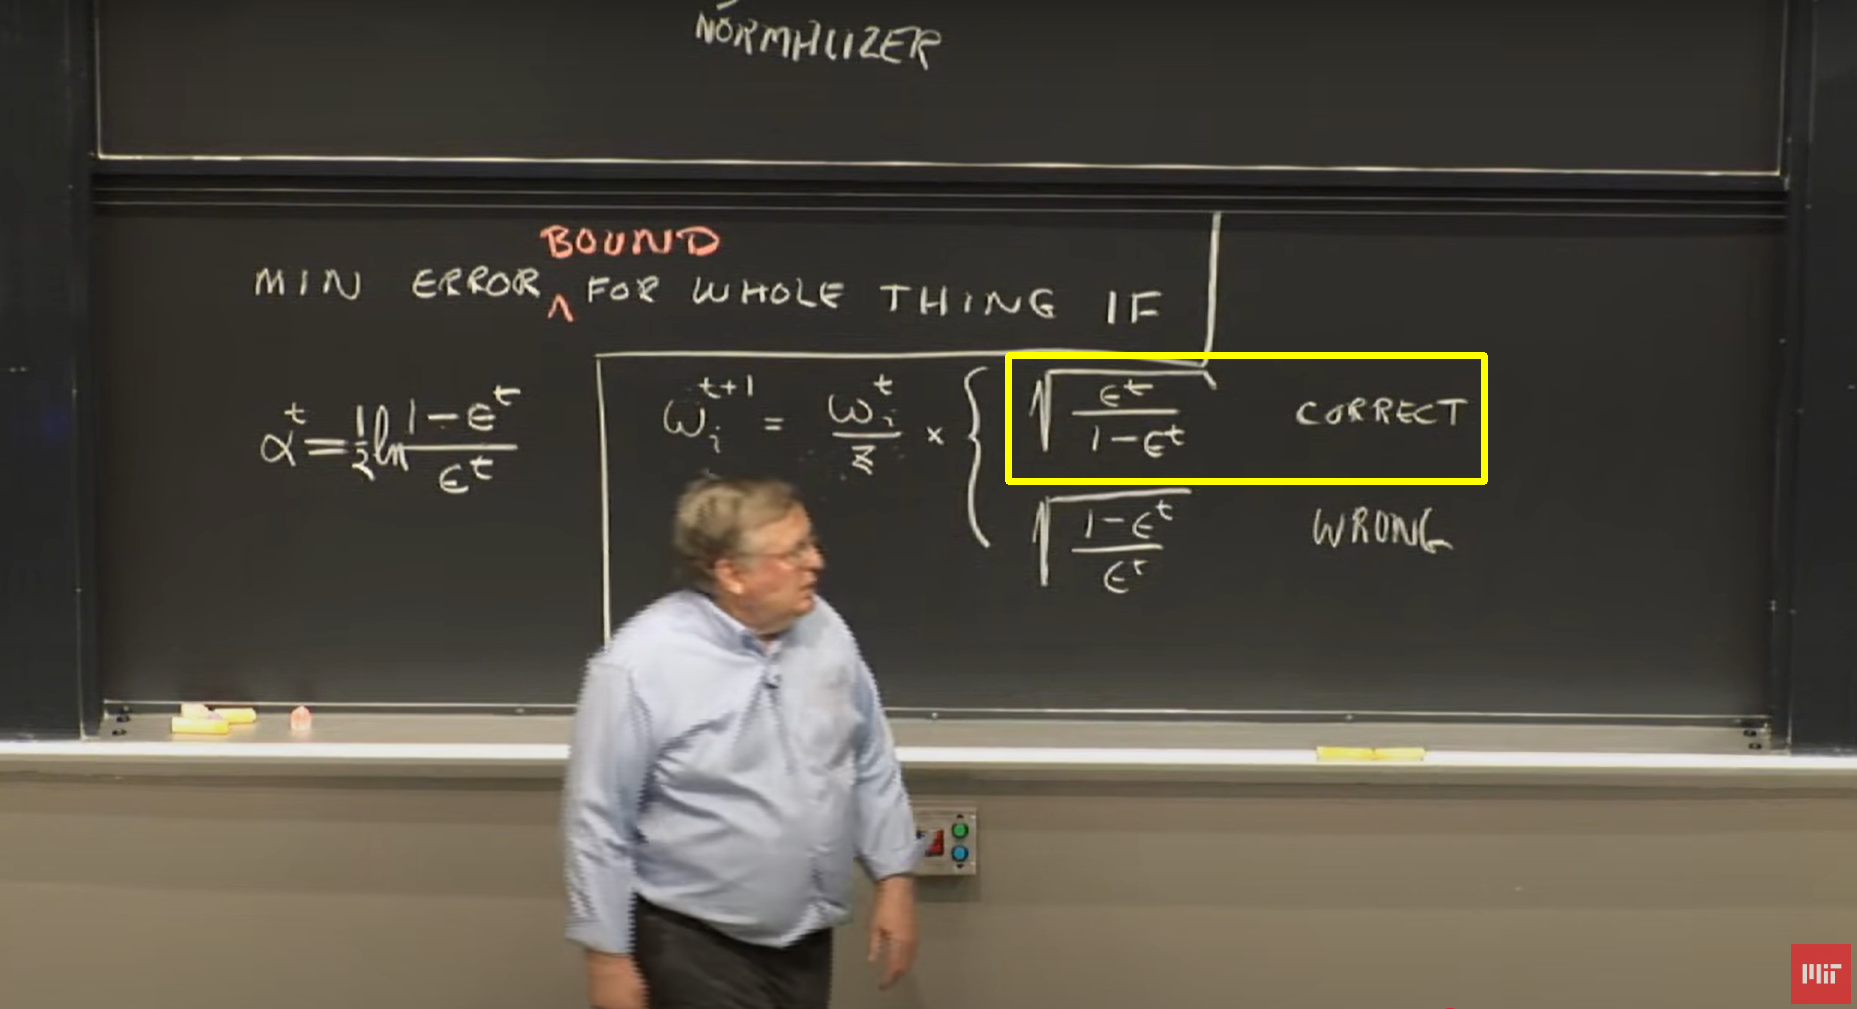 NORMALIZER
BOUND
MIN ERROR ^ FOR WHOLE THING IF
α^t = 1/2 ln (1-ε^t)/ε^t
ω_i^{t+1} = ω_i^t/z × { √(ε^t/(1-ε^t)) CORRECT
√((1-ε^t)/ε^t) WRONG
MIT